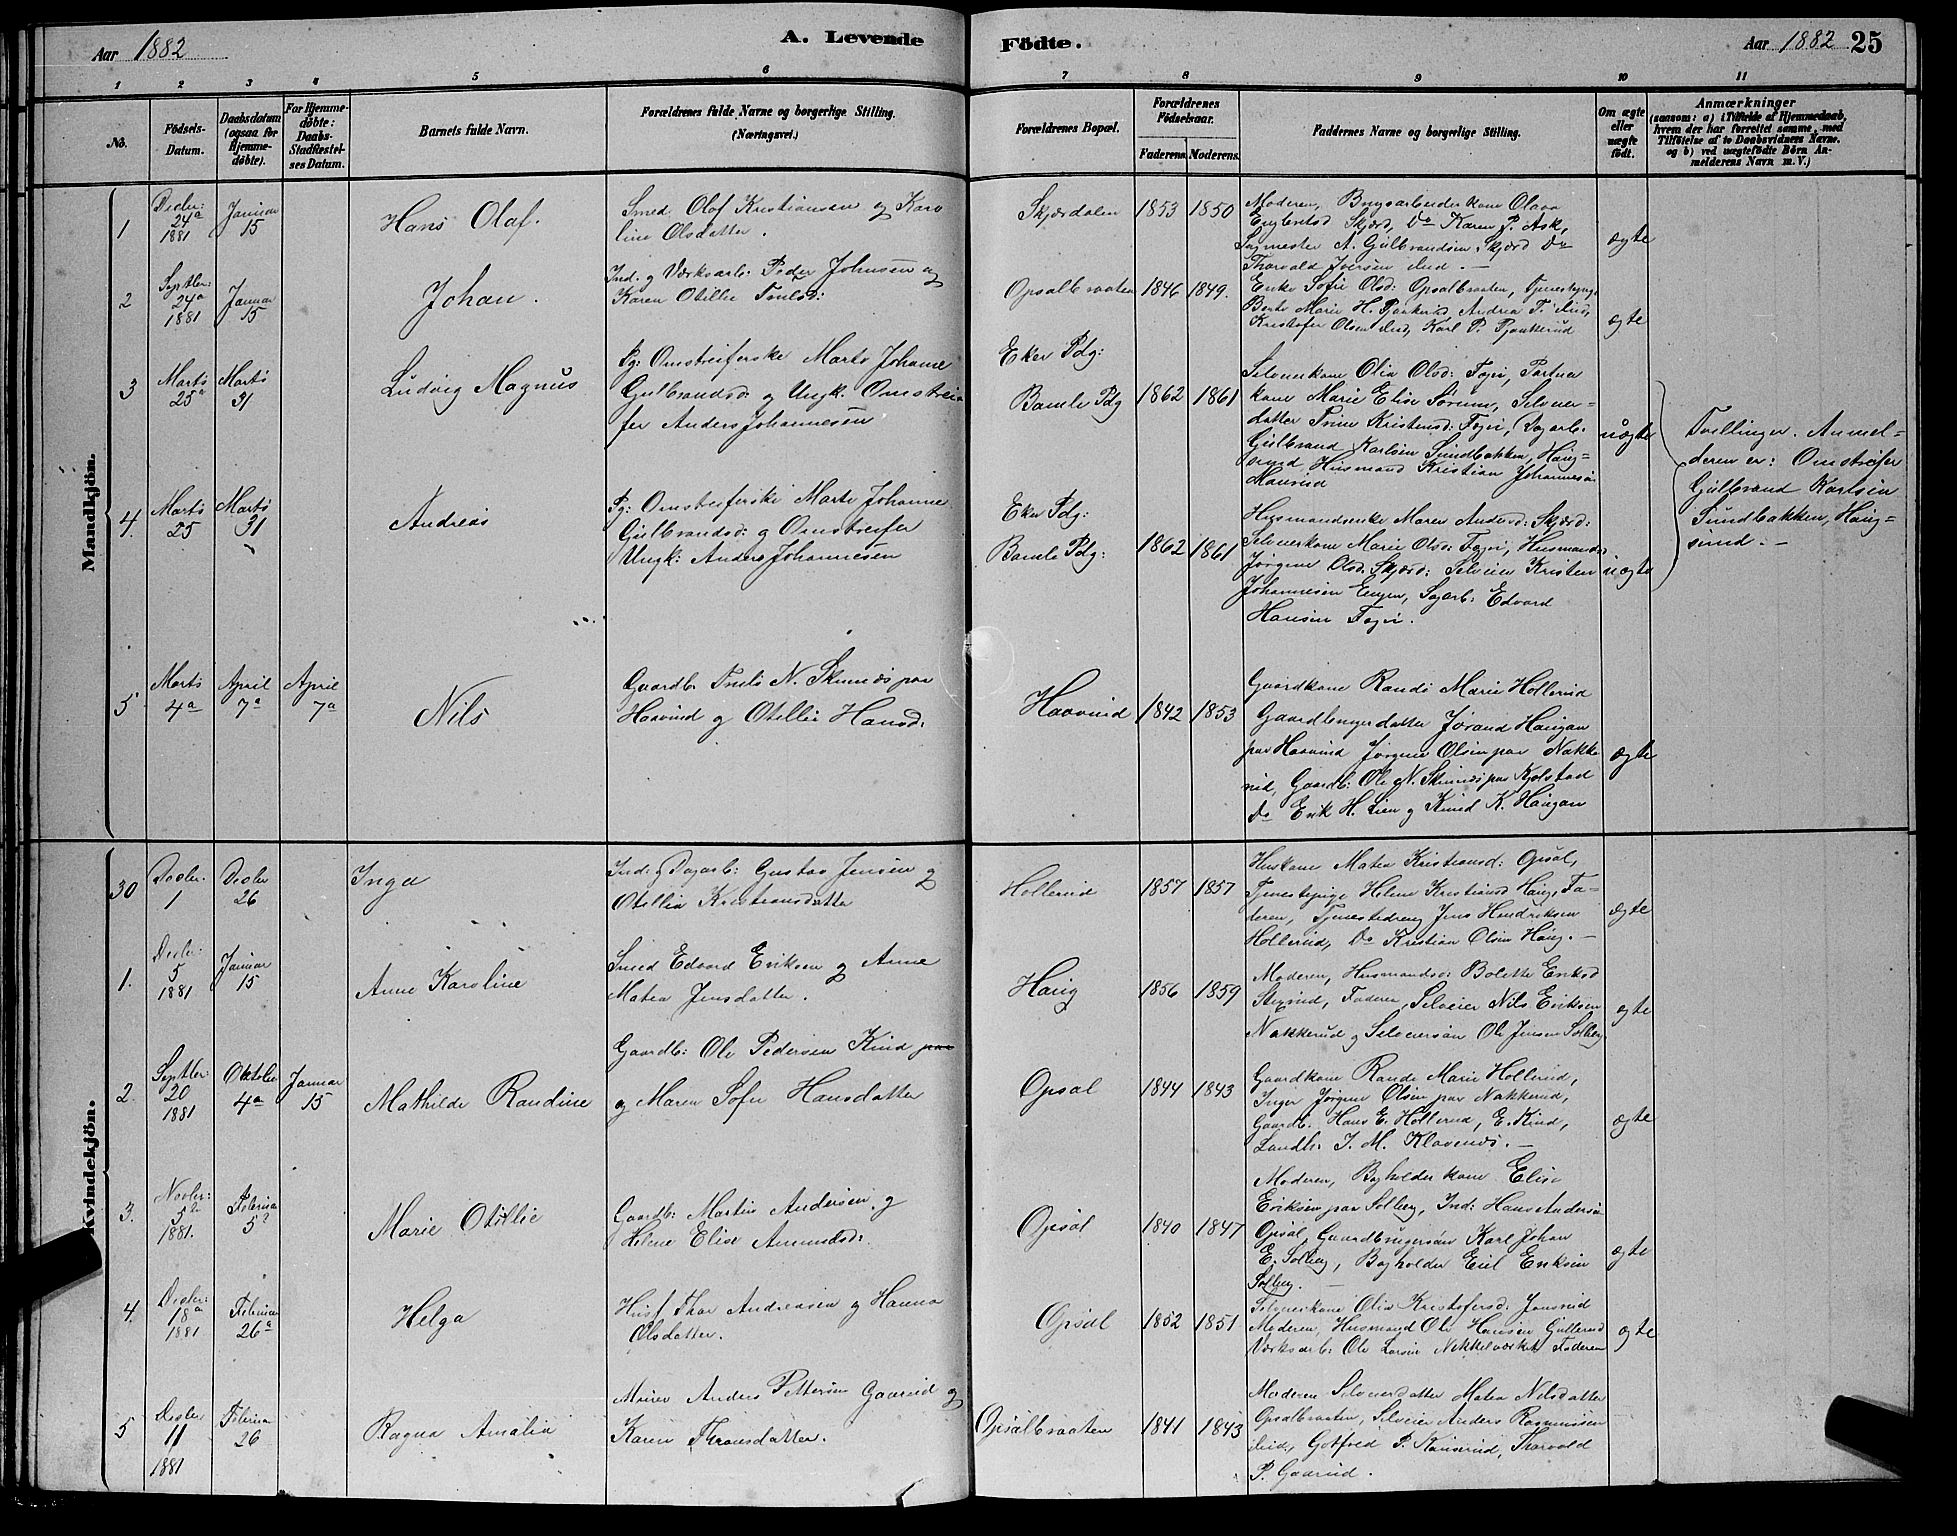 Aar 1882
A. Levende
Fødte.
Aar 1882 25
1 2 3 4 5 6 7 8 9 10 11
No.
Fødsels-Datum.
Daabsdatum (ogsaa for Hjemmedøbte).
For Hjemmedøbte: Daabs-Stadfæstelses Datum.
Barnets fulde Navn.
Forældrenes fulde Navne og borgerlige Stilling. (Næringsvei.)
Forældrenes Bopæl.
Forældrenes Fødselsaar.
Faderens. Moderens.
Faddernes Navne og borgerlige Stilling.
Om ægte eller uægte født.
Anmærkninger
(saasom: a) i Tilfælde af Hjemmedaab, hvem der har forrettet samme, med Tilføielse af to Daabsvidners Navne, og b) ved uægtefødte Børn Anmelderens Navn m. V.)
Mandkjøn.
1
Decbr: 24a 1881
Januar 15
Hans Olaf.
Smed Olof Kristiansen og Karo
line Olsdatter.
Skjærdalen
1853 1850
Moderen, Brugsarbeiderkone Olava
Engbretsd Skjærd, Do Karen P. Ask,
Sagmester A. Gulbrandsen Skjærd Do
Thorvald Iversen ibid.
ægte
2
Septbr: 24a 1881
Januar 15
Johan.
Ind. og Værksarb: Peder Johnsen og
Karen Otillie Truls:
Opsalbraaten
1846 1849.
Enke Sofie Olsd: Opsalbraaten, Tjenestepige
Berte Marie H. Pjaakerud, Andrea T. ibid,
Kristofer Olsen ibid, Karl P. Pjaakerud
ægte
3
Marts 25a
Marts 31
Ludvig Magnus
Pg: Omstreiferske Marte Johanne
Gulbrandsd: og Ungk. Omstrei
fer Anders Johannesen
Eker Pdg:
Bamle Pdg
1862 1861
Selveierkone Olia Olsd: Fegri,
kone Marie Elise Sørum, Selveier=
datter Trine Kristensd: Fegri, Dagarb.
Gulbrand Karlsen Sundbakken, Haug=
sund, Husmand Kristian Johannesen
uægte
Tvillinger. Anmel=
deren er: Omstreifer
Gulbrand Karlsen
Sundbakken, Haug=
sund.
4.
Marts 25
Marts 31
Andreas
Pg: Omstreiferske Marte Johanne
Gulbrandsd: og Omstreifer
Ungk: Anders Johannesen
Eker Pdg:
Bamle Pdg:
1862 1861
Husmandsenke Maren Andersd: Skjærd:
Selveierkone Marie Olsd: Fegri, Husmandsd.
Jørgine Olsd. Skjærd: Selveier Kristen
Johannesen Engen, Sagarb: Edvard
Hansen Fegri.
uægte
5
Marts 4a
April 7a
April 7a
Nils
Gaardb. Truls N. Skinnæs paa
Haavind og Otillie Hansd:
Haavind
1842 1853
Gaardkone Randi Marie Hollerud
Gaardbrugerdatter Jørand Haugan
paa Haavind Jørgine Olsen paa Nække
rud, Gaardb: Ole N. Skinnæs paa Kjølstad
Do Erik H. Lien og Knud K. Haugan
ægte
Kvindekjøn.
30
Decbr. 1
Decbr 26
Inga
Ind: og Dagarb: Gustav Jensen og
Otillia Kristiansdatter
Hollerud
1857 1857
Huskone Matea Kristiansd: Opsal,
Tjenestepige Helene Kristiansd Haug, Fa=
deren, Tjenestedreng Jens Hendriksen
Hollerud, Do Kristian Olsen Haug.
ægte
1.
Decbr: 5 1881
Januar 15
Anne Karoline
Smed Edvard Eriksen og Anne
Matea Jensdatter.
Haug
1856 1859
Moderen, Husmandsd: Bolette Eriksd
Stixrud, Faderen, Selveier Nils Eriksen
Nakkerud og Selveiersøn Ole Jensen Solberg.
ægte
2.
Septbr: 20 1881
Oktober 4a
Januar 15
Mathilde Randine
Gaardb: Ole Pedersen Kind paa
og Maren Sofie Hansdatter
Opsal
1844 1843
Gaardkone Randi Marie Hollerud,
Inger Jørgine Olsen paa Nakkerud,
Gaardb. Hans E. Hollerud, E. Kind,
Landh: J. M. Klavenæs.
ægte
3.
Novbr: 5 1881.
Februar 5
Marie Otillie
Gaardb: Martin Andersen og
Helene Elise Amundsd:
Opsal
1840 1847
Moderen, Bogholderkone Elise
Eriksen paa Solberg, Ind: Hans Andersen
Opsal, Gaardbrugersøn Karl Johan
E. Solberg, Bogholder Emil Eriksen
Solberg.
ægte
4.
Decbr: 18a 1881
Februar 26a
Helga
Husf. Thor Andreasen og Hanna
Olsdatter.
Opsal
1852 1851
Selveierkone Olia Kristofersd: Jonsrud
Moderen, Husmand Ole Hansen Gullerud
Værksarb: Ole Larsen Nikkelværket, Faderen
ægte
5
Decbr. 11 1881
Februar 26
Ragna Amalia
Murer Anders Pettersen Gaarud og
Karen Thronsdatter.
Opsalbraaten
1841 1843
Moderen Selveierdatter Matea Nilsdatter
Opsalbraaten, Selveier Anders Rasmussen
ibid, Gotfred P. Kanserud, Thorvald
P. Gaarud.